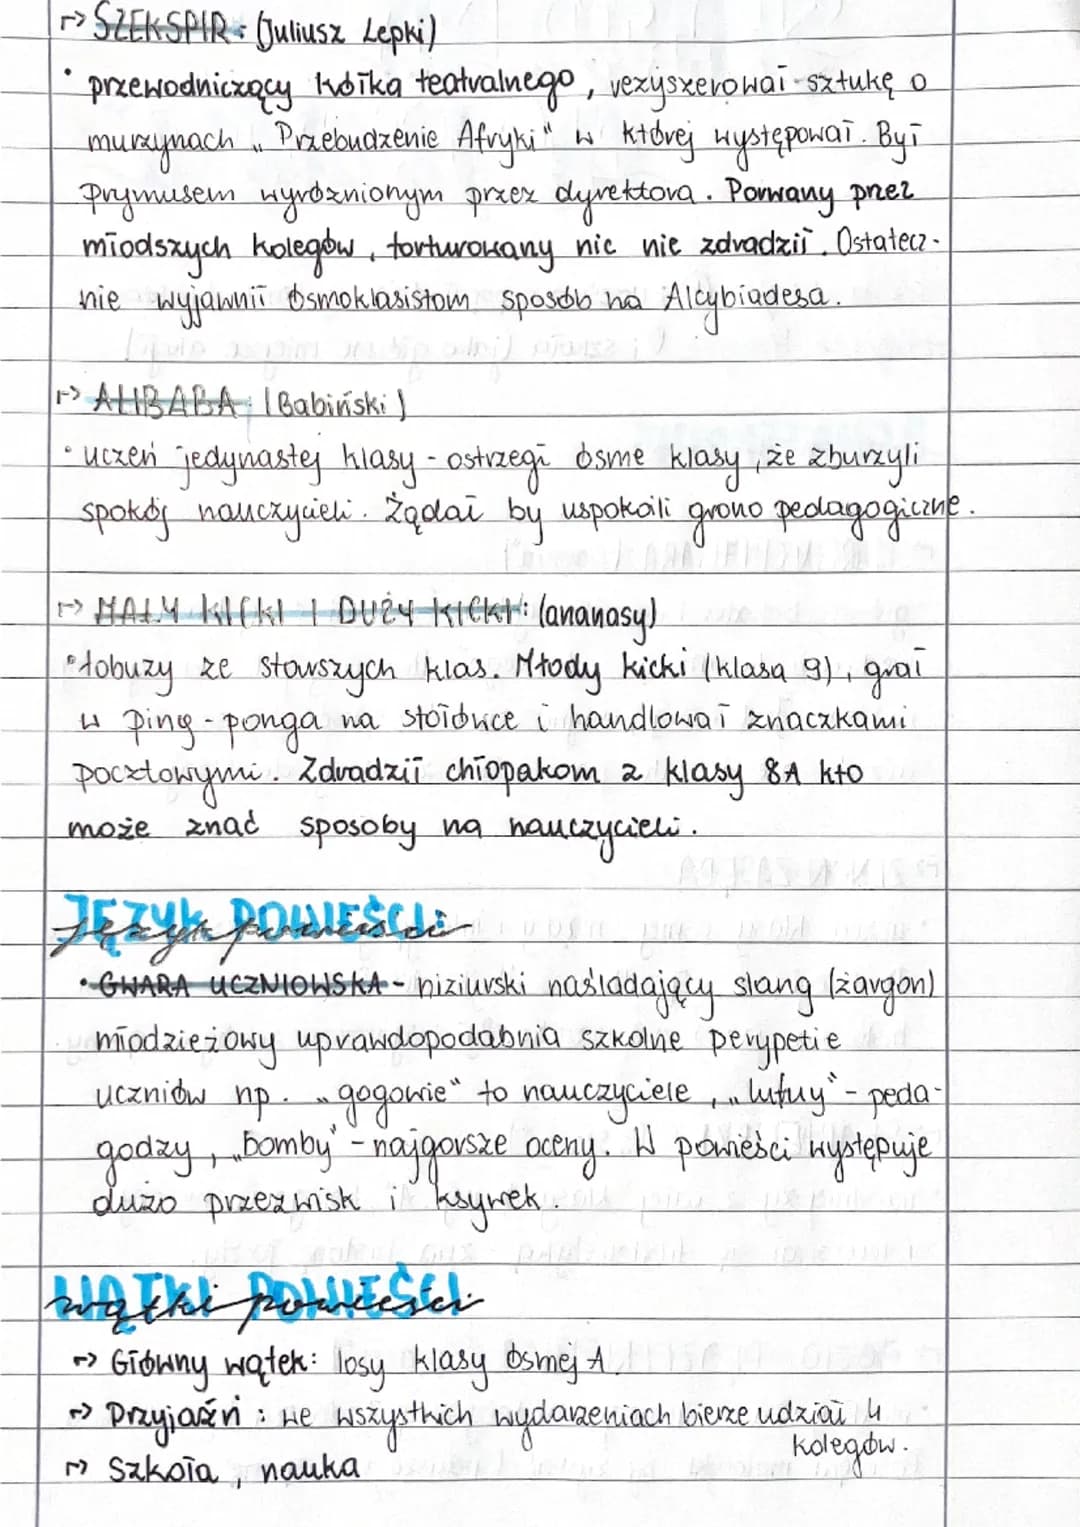 ↦ SZEKSPIR: (Juliusz Lepki)
• przewodniczący kółka teatralnego, reżyszerował sztukę o
murzynach „Przebudzenie Afryki" w której występował. Był
Prymusem wyróżnionym przez dyrektora. Porwany przez
młodszych kolegów, torturowany nic nie zdradził. Ostatecz-
nie wyjawnił ósmoklasistom sposób na Alcybiadesa.
↦ ALIBABA: (Babiński)
• uczeń jedynastej klasy - ostrzegł ósme klasy, że zburzyli
spokój nauczycieli. Żądał by uspokoili grono pedagogiczne.
↦ MAŁY KICKI I DUŻY KICKI: (ananasy)
• łobuzy ze starszych klas. Młody kicki (klasa 9), grał
w Ping-ponga na stołówce i handlował znaczkami
pocztowymi. Zdradził chłopakom z klasy 8A kto
może znać sposoby na nauczycieli.
JĘZYK POWIEŚCI
Język powieści
• GWARA UCZNIOWSKA - niziurski naśladający slang (żargon)
młodzieżowy uprawdopodabnia szkolne perypetie
uczniów np. „gogowie" to nauczyciele, „lufuy" - peda-
godzy, „bomby" - najgorsze oceny. W powieści występuje
dużo przezwisk i ksywek.
WĄTKI POWIEŚCI
wątki powieści
↦ Główny wątek: losy klasy ósmej A.
↦ Przyjaźń: we wszystkich wydarzeniach bierze udział 4
kolegów.
↦ Szkoła, nauka